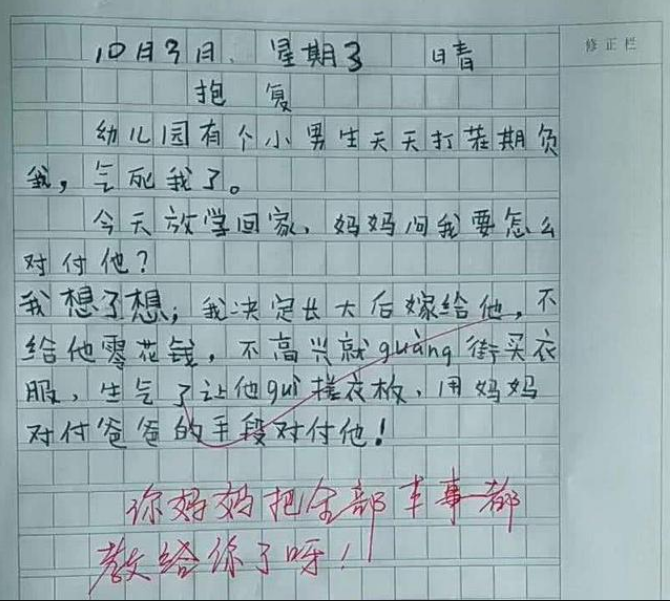 10月3日、星期3 晴
修正栏
抱复
幼儿园有个小男生天天打茬期负
我，气死我了。
今天放学回家、妈妈问我要怎么
对付他？
我想了想，我决定长大后嫁给他，不
给他零花钱，不高兴就guàng街买衣
服、生气了让他guì搓衣板、用妈妈
对付爸爸的手段对付他！
你妈妈把全部本事都
教给你了呀！